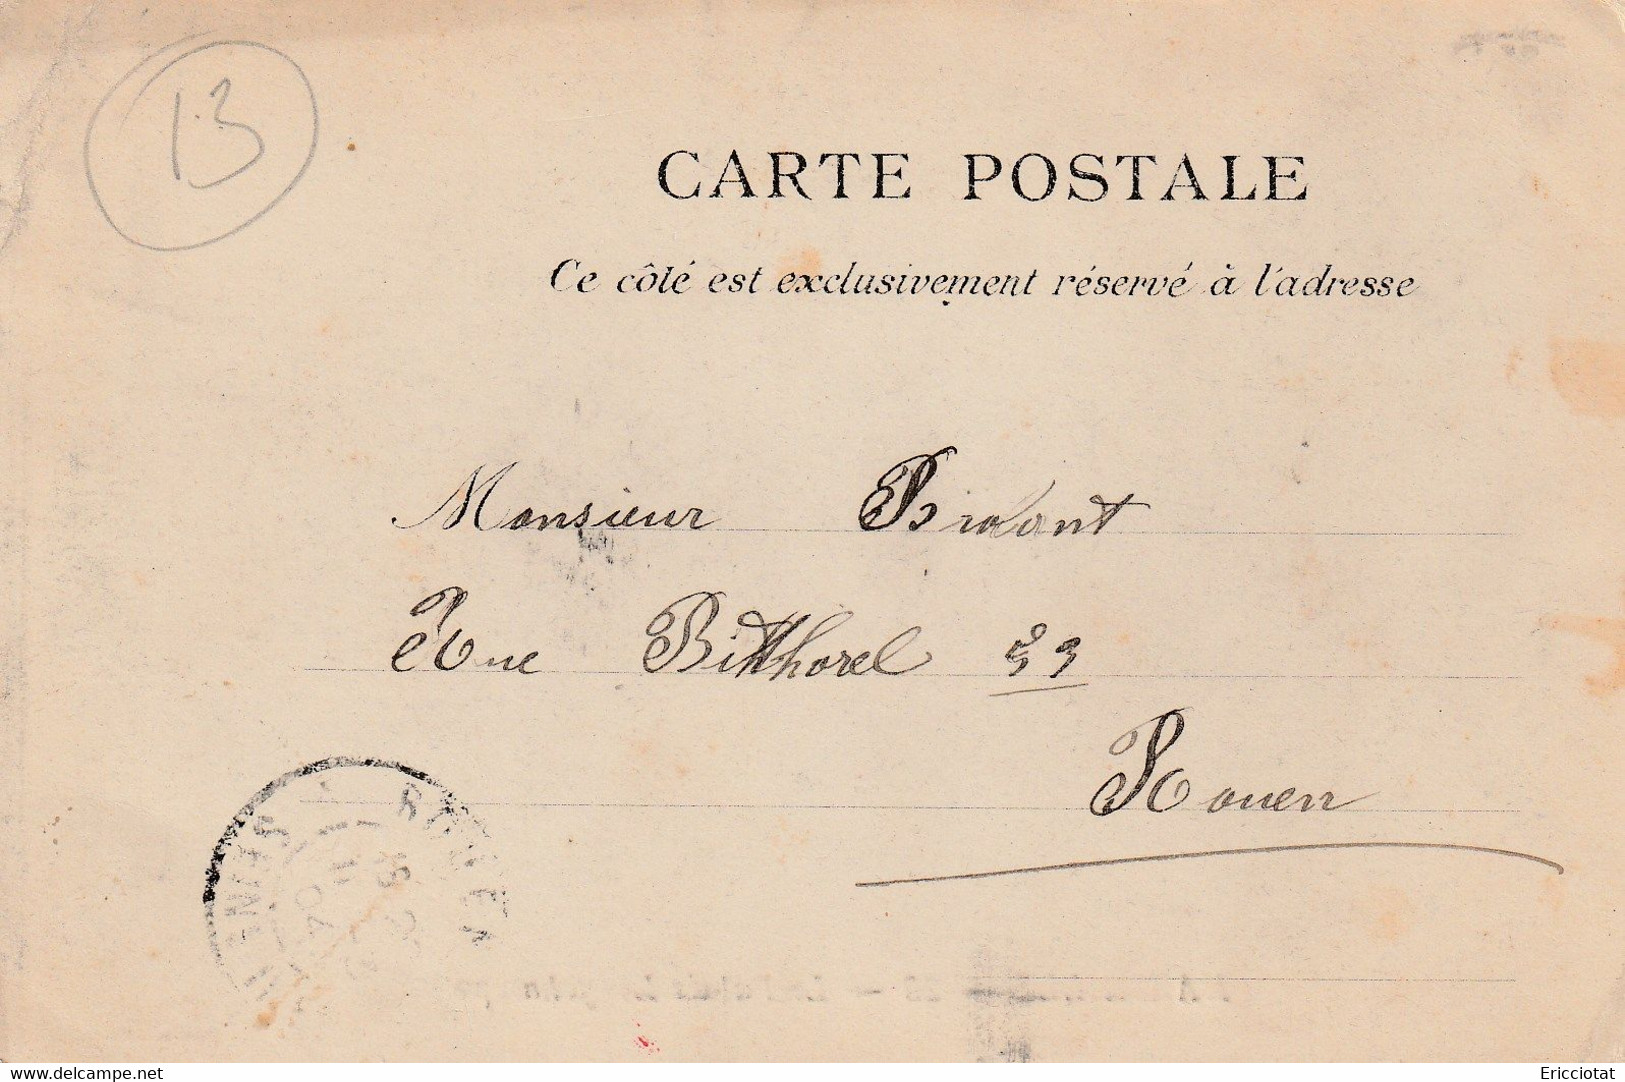 13
CARTE POSTALE
Ce côté est exclusivement réservé à l'adresse
Monsieur
Rue Bitthorel 59
Rouen
www.delcampe.net
Ericciotat